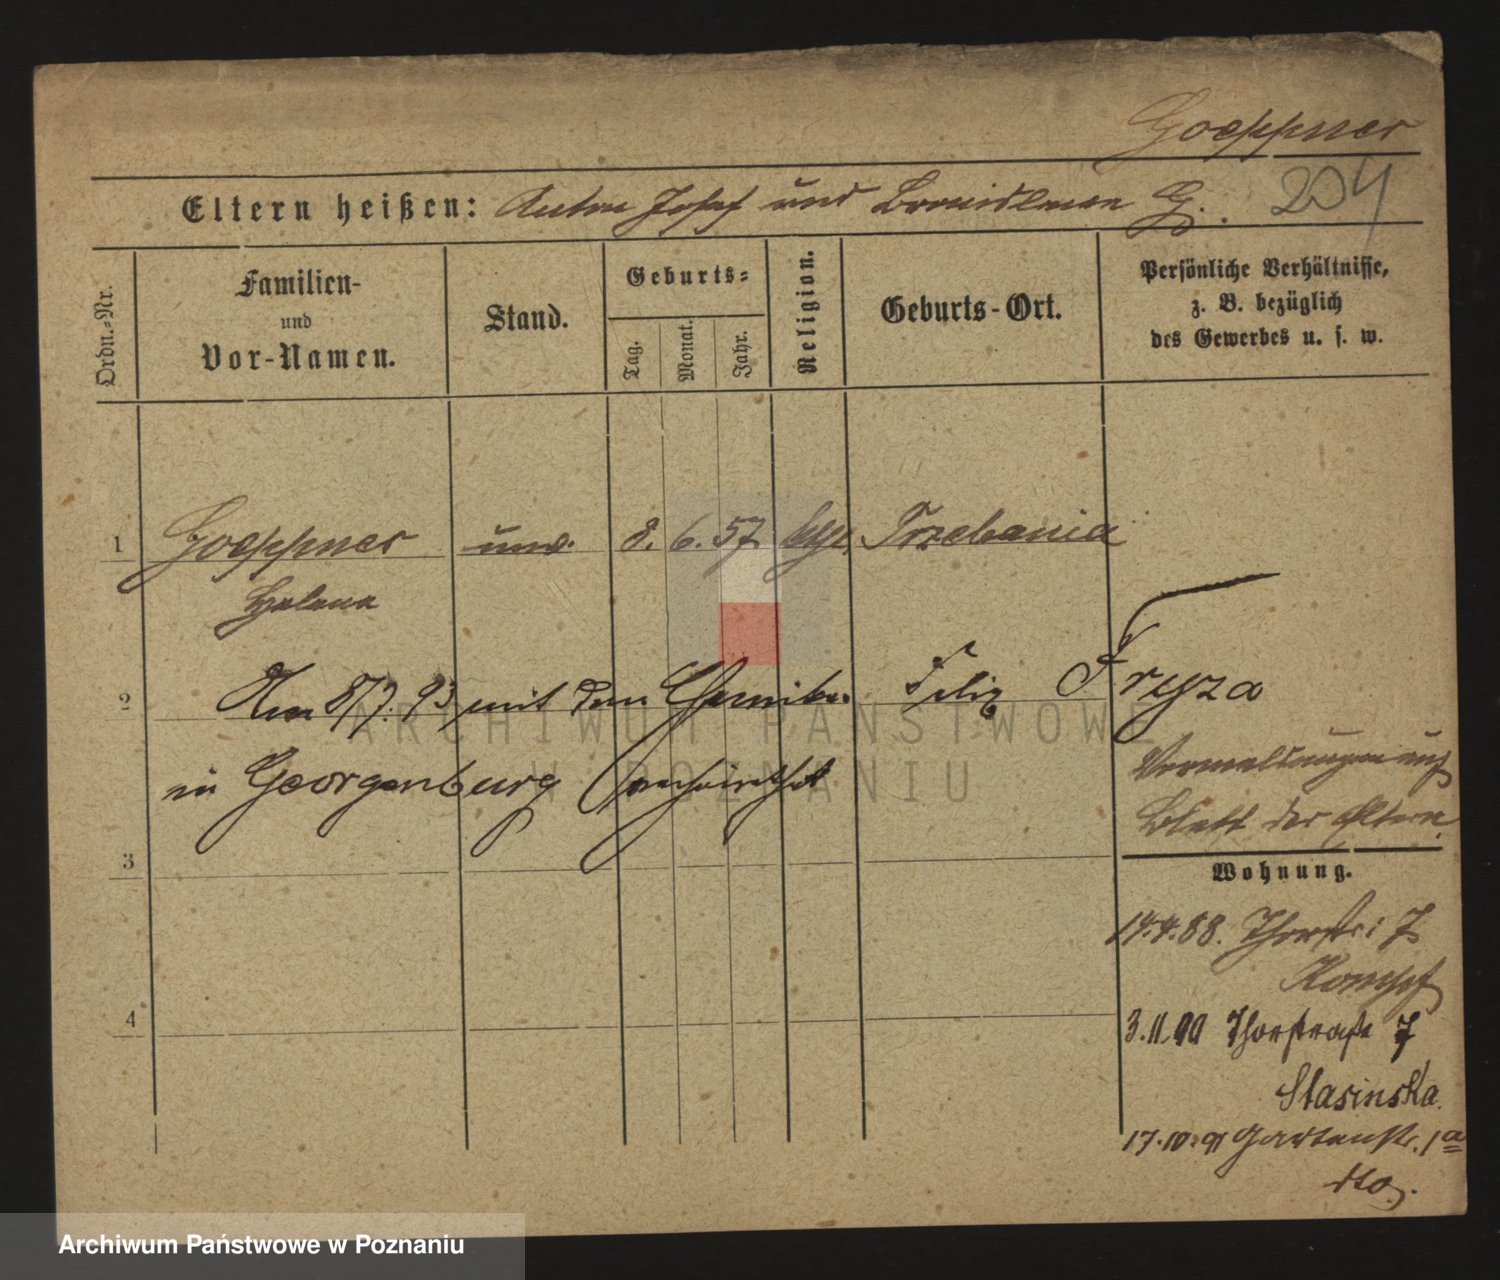 Goeppner
204
Eltern heißen: Anton Josef und Bronislawa G.
Ordn.=Nr.
Familien-
und
Vor-Namen.
Stand.
Geburts=
Tag.
Monat.
Jahr.
Religion.
Geburts-Ort.
Persönliche Verhältnisse,
z. B. bezüglich
des Gewerbes u. s. w.
1 Goeppner unv. 8. 6. 57 Trzebania
Helene
2 Am 8/7. 93 mit dem Felix Fryza
in Georgenburg verheirathet
Vermeldungen auf
Blatt der Eltern
3
Wohnung.
14.4.88. Thorstr: 7
4
3.11.90 Thorstraße 7
Stasinska
17.10.91 Gartenstr. 1a
dto.
ARCHIWUM PAŃSTWOWE
W POZNANIU
Archiwum Państwowe w Poznaniu